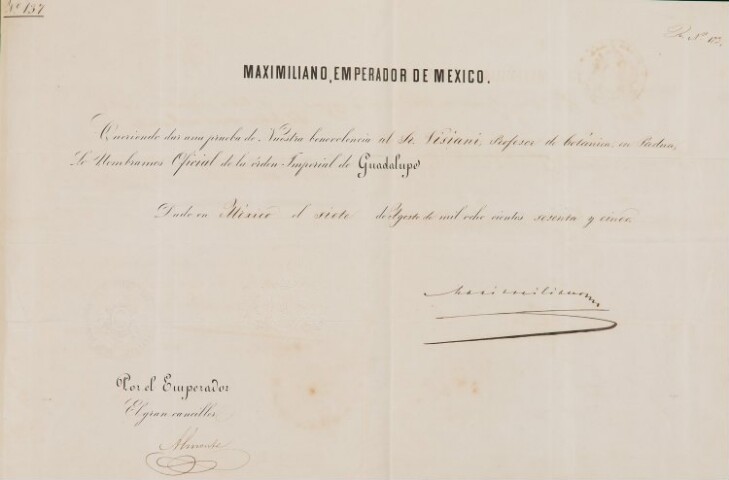 Nº 157
MAXIMILIANO, EMPERADOR DE MEXICO.
Queriendo dar una prueba de Nuestra benevolencia al Sr. Visiani, Profesor de botánica en Padua,
Le Nombramos Oficial de la órden Imperial de Guadalupe
Dado en México el siete de Agosto de mil ocho cientos sesenta y cinco.
Maximiliano
Por el Emperador
El gran canciller
Almonte